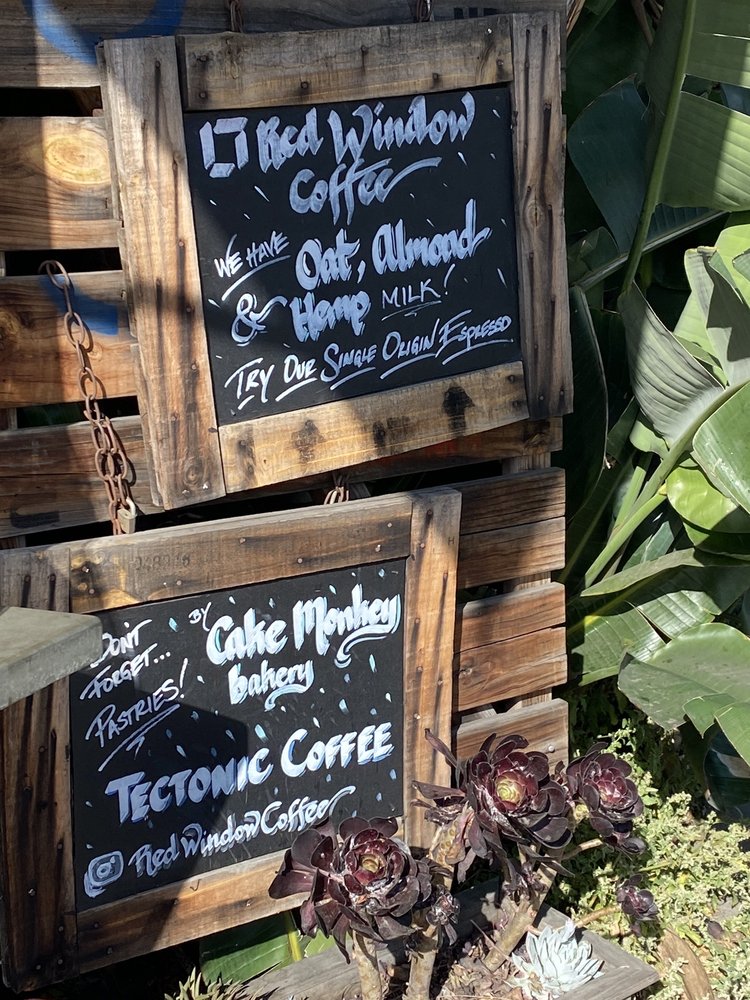 Red Window
Coffee
WE HAVE Oat, Almond
& Hemp MILK!
TRY OUR SINGLE ORIGIN ESPRESSO
DON'T FORGET...
PASTRIES!
BY Cake Monkey
bakery
TECTONIC COFFEE
Red Window Coffee